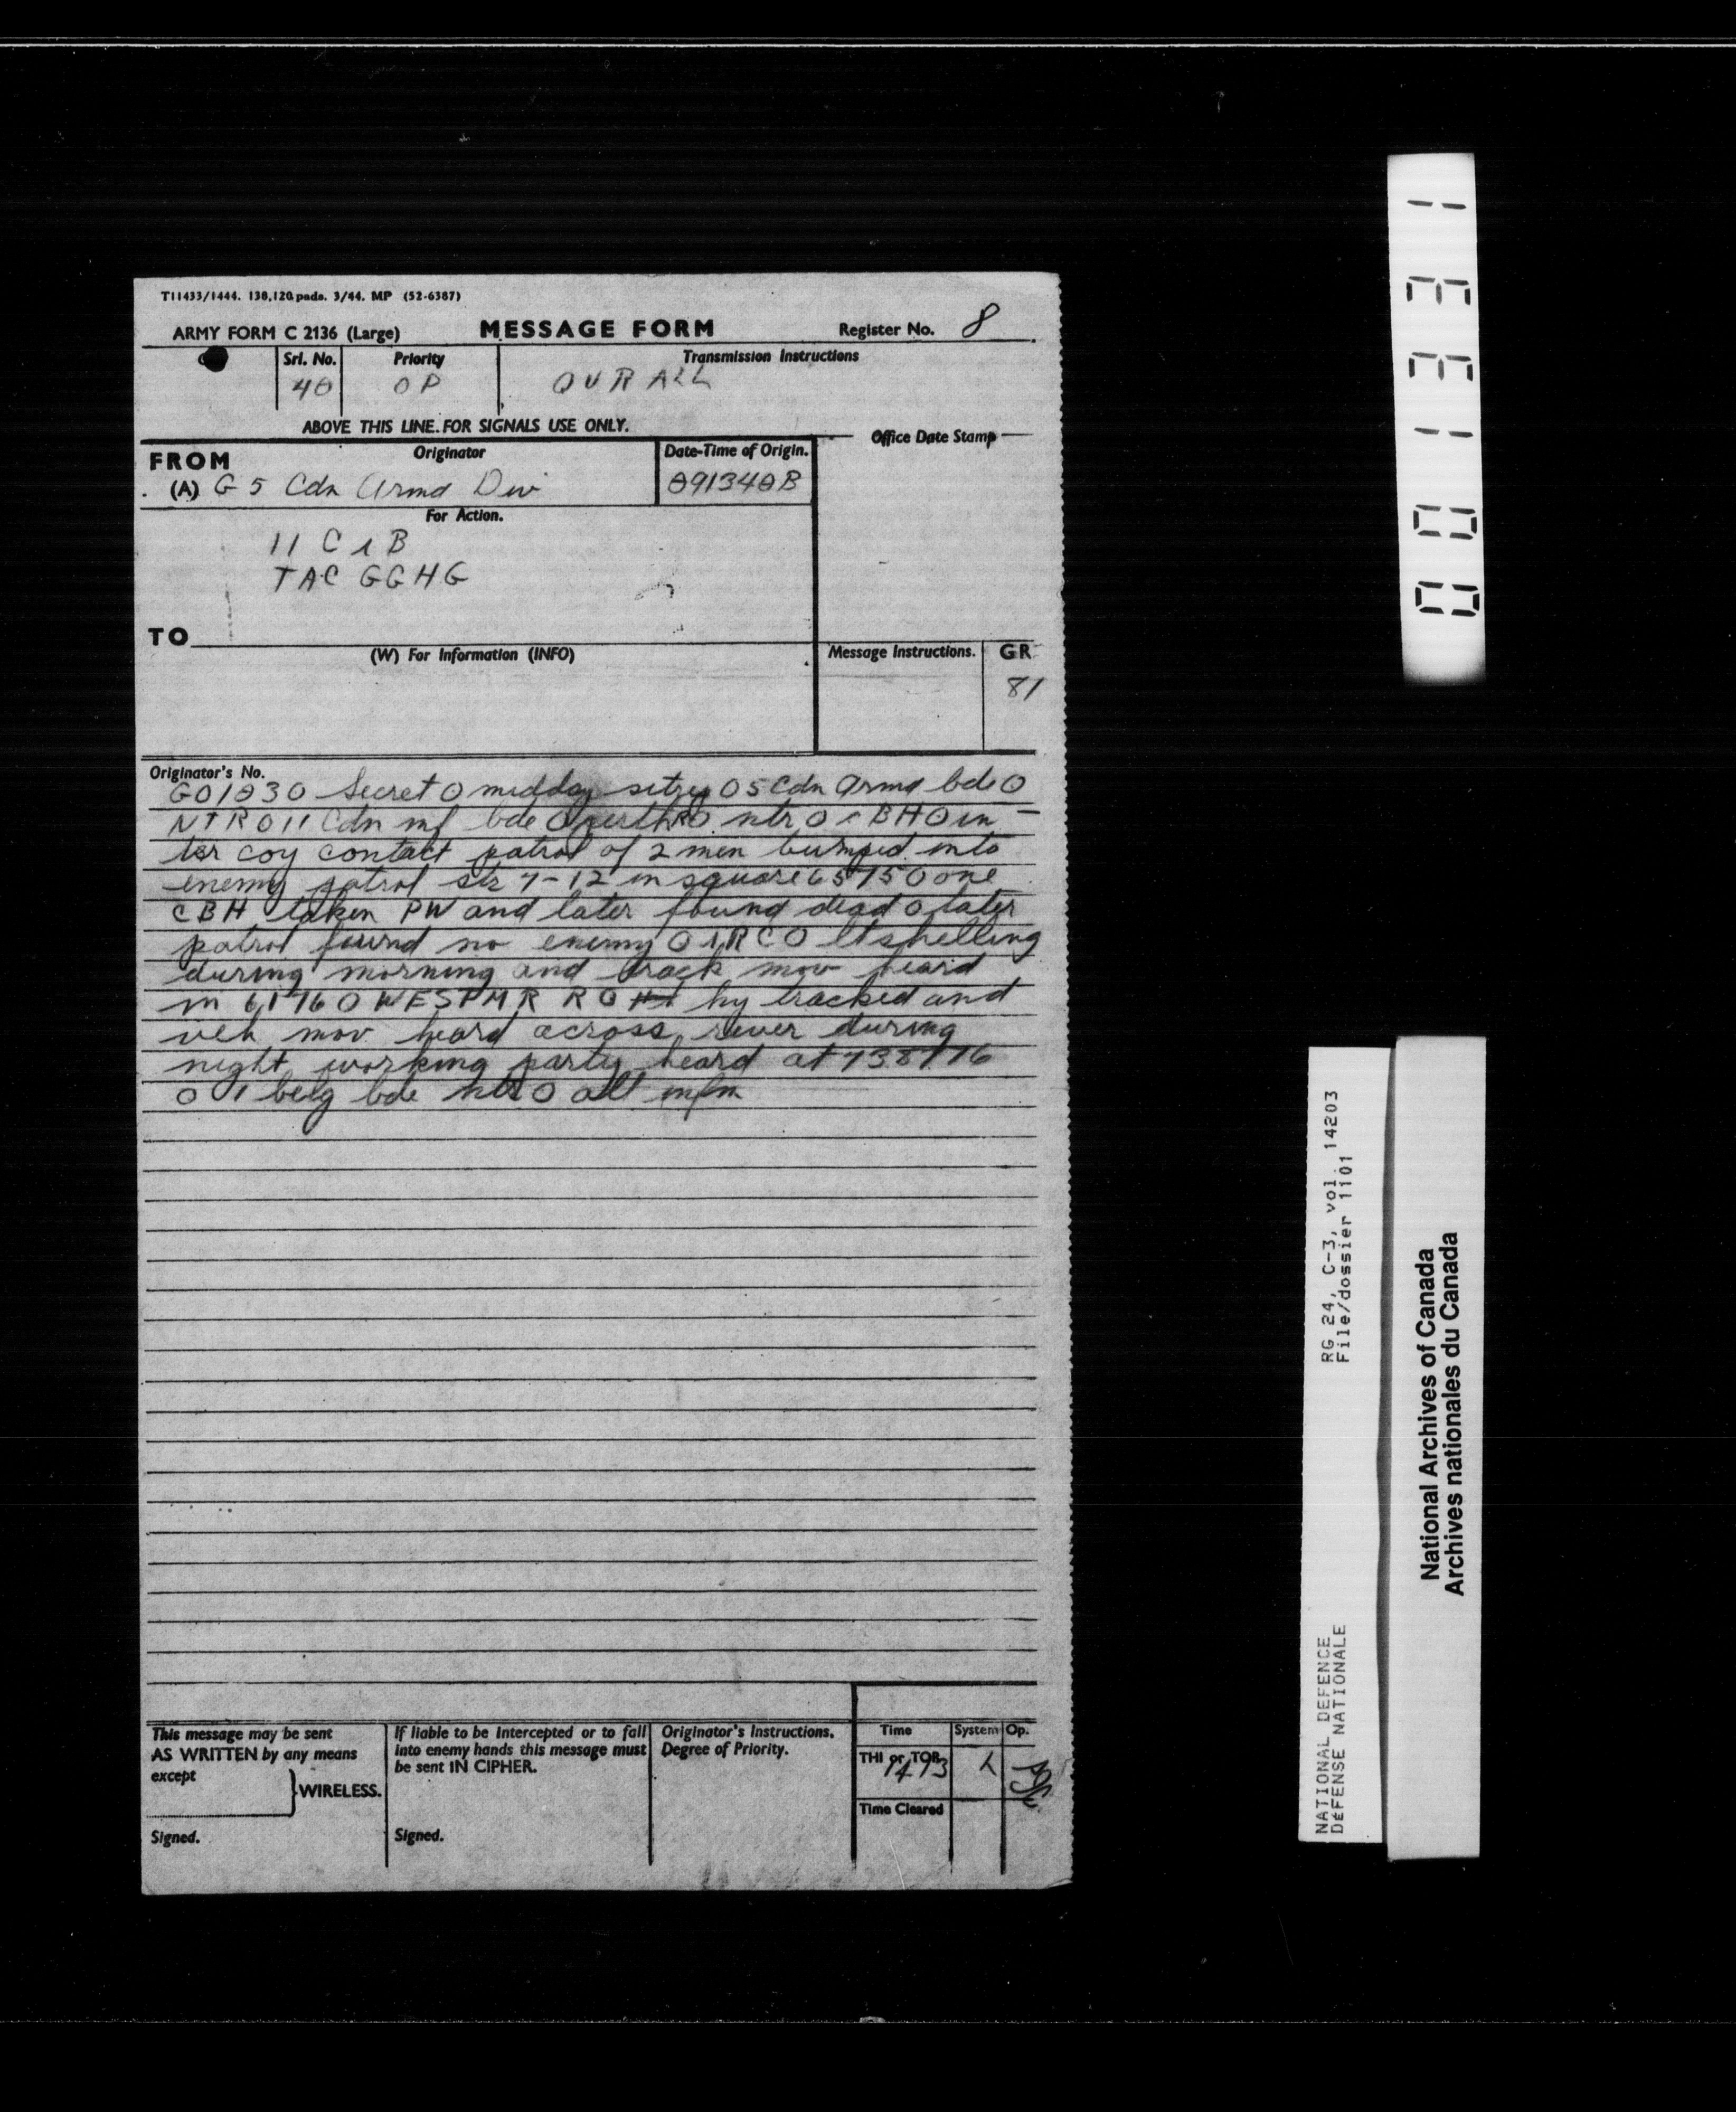 T11433/1444. 138,120 pads. 3/44. MP (52-6387)
ARMY FORM C 2136 (Large) MESSAGE FORM Register No. 8
Srl. No. Priority Transmission Instructions
40 OP QVR ALL
ABOVE THIS LINE FOR SIGNALS USE ONLY.
Office Date Stamp
FROM Originator Date-Time of Origin.
(A) G 5 Cdn Armd Div 091340B
For Action.
11 C I B
TAC GGHG
TO
(W) For Information (INFO) Message Instructions. GR
81
Originator's No.
GO1030 Secret O midday sitrep O 5 Cdn Armd bde O
NTR O 11 Cdn inf bde O perth R O ntr O CBH O in-
ter coy contact patrol of 2 men bumped into
enemy patrol str 7-12 in square 6575 O one
CBH taken PW and later found dead O later
patrol found no enemy O IRC O lt shelling
during morning and track mov heard
in 6176 O WESTMR R O hy tracked and
veh mov heard across river during
night working party heard at 738776
O 1 belg bde ntr O all infm
This message may be sent
AS WRITTEN by any means
except
WIRELESS.
Signed.
If liable to be intercepted or to fall
into enemy hands this message must
be sent IN CIPHER.
Signed.
Originator's Instructions.
Degree of Priority.
Time System Op.
THI or TOR 1413 L
Time Cleared
001331
RG 24, C-3, vol. 14203
File/dossier 1101
NATIONAL DEFENCE
DÉFENSE NATIONALE
National Archives of Canada
Archives nationales du Canada